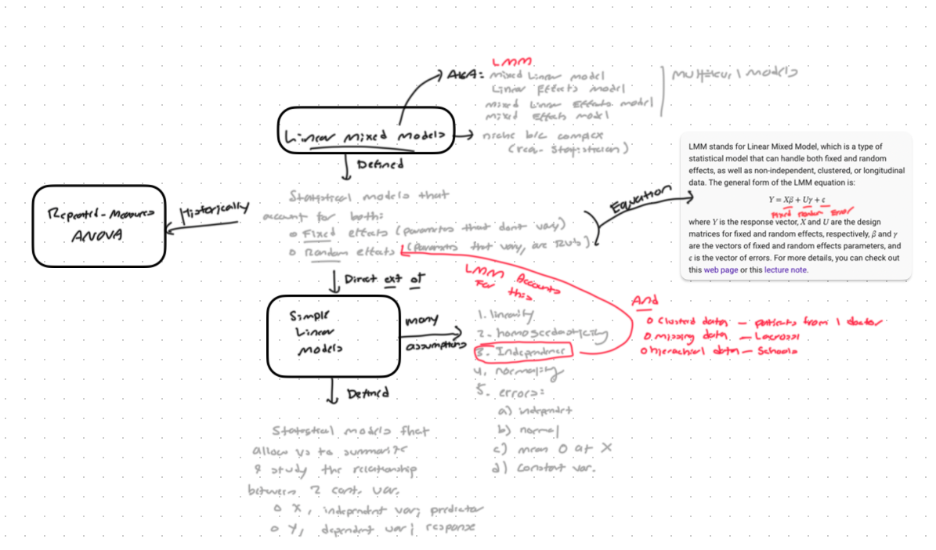 LMM
AKA: mixed linear model
Linear Effects model
mixed linear effects model
mixed effects model
Multilevel models
Linear Mixed Models
niche b/c complex
Defined
Statistical models that
account for both:
o Fixed effects (parameters that don't vary)
o Random effects (parameters that vary, are RVs)
Historically
Repeated-Measures
ANOVA
Equation
LMM stands for Linear Mixed Model, which is a type of
statistical model that can handle both fixed and random
effects, as well as non-independent, clustered, or longitudinal
data. The general form of the LMM equation is:
Y = Xβ + Uγ + ε
Fixed random Error
where Y is the response vector, X and U are the design
matrices for fixed and random effects, respectively, β and γ
are the vectors of fixed and random effects parameters, and
ε is the vector of errors. For more details, you can check out
this web page or this lecture note.
Direct ext of
LMM Accounts
For this
Simple
Linear
models
many
assumptions
1. linearity
2. homoscedasticity
3. Independence
4. normality
5. errors:
a) independent
b) normal
c) mean 0 at X
d) constant var.
And
o Clustered data – patients from 1 doctor
o missing data – Lacrosse
o hierarchical data – Schools
Defined
Statistical models that
allow us to summarize
& study the relationship
between 2 cont. var.
o X, independent var; predictor
o Y, dependent var; response